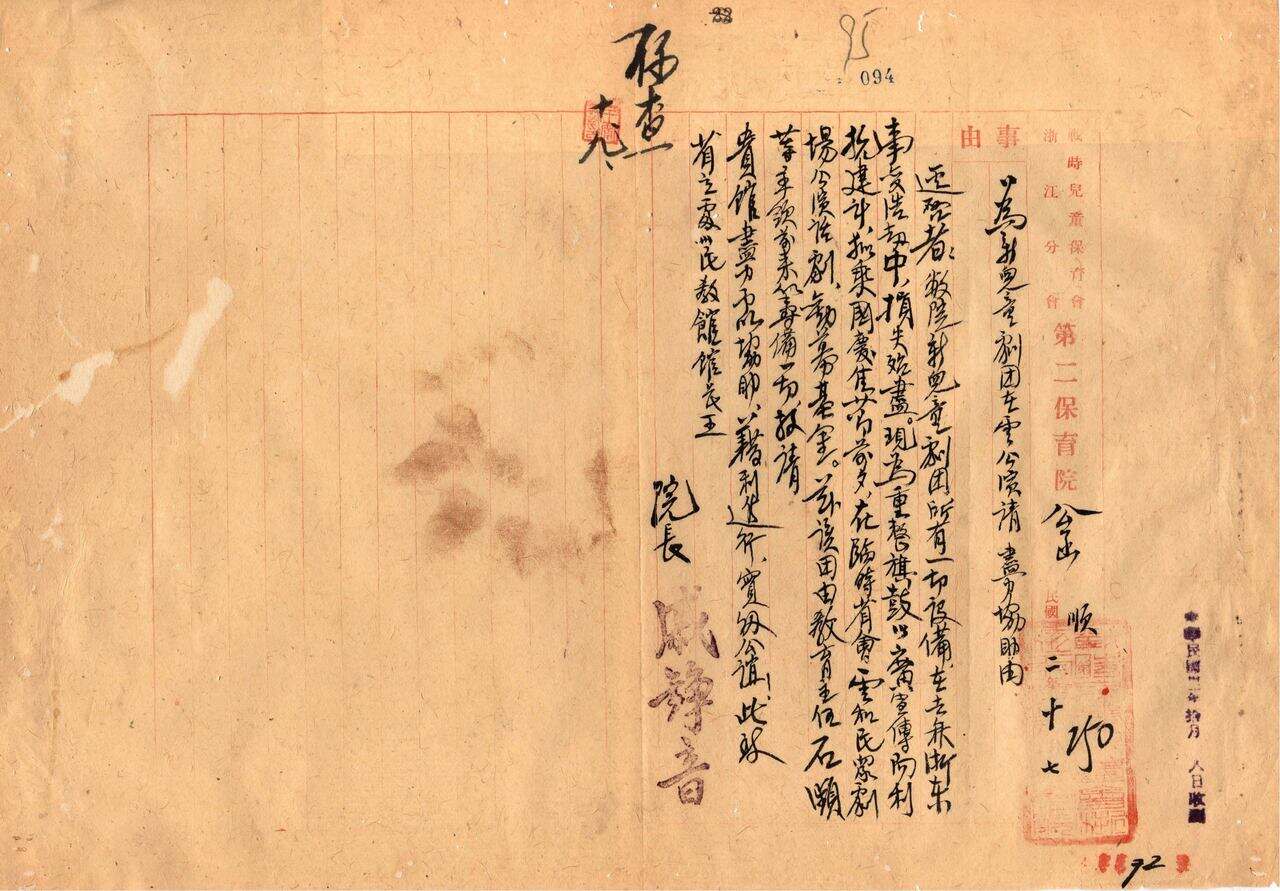 095
094
戰時兒童保育會
浙江分會
第二保育院
公函
順
民國
年
二
十
七
中華民國卅二年拾月八日收到
事由
為新兒童劇团在雲公演請盡力協助由
逕啓者：敝院新兒童劇团所有一切設備，在去年浙东
事変浩劫中，損失殆盡。現為重整旗鼓以廣宣傳而利
抗建計，拟乘國慶佳节前夕，在臨時省會雲和民眾劇
場公演話劇，勸募基金。茲該团由教育主任石頤
等率領前来筹備一切，敬請
貴館盡力予以協助，以藉利進行，實纫公誼！此致
省立處州民教館館長王
院長
戚錚音
存查
十、九、
92